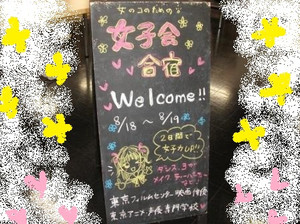 女のコのための
女子会
合宿
Welcome!!
8/18～8/19
2日間で
女子力UP!!
東京フィルムセンター映画・俳優
東京アニメ・声優専門学校